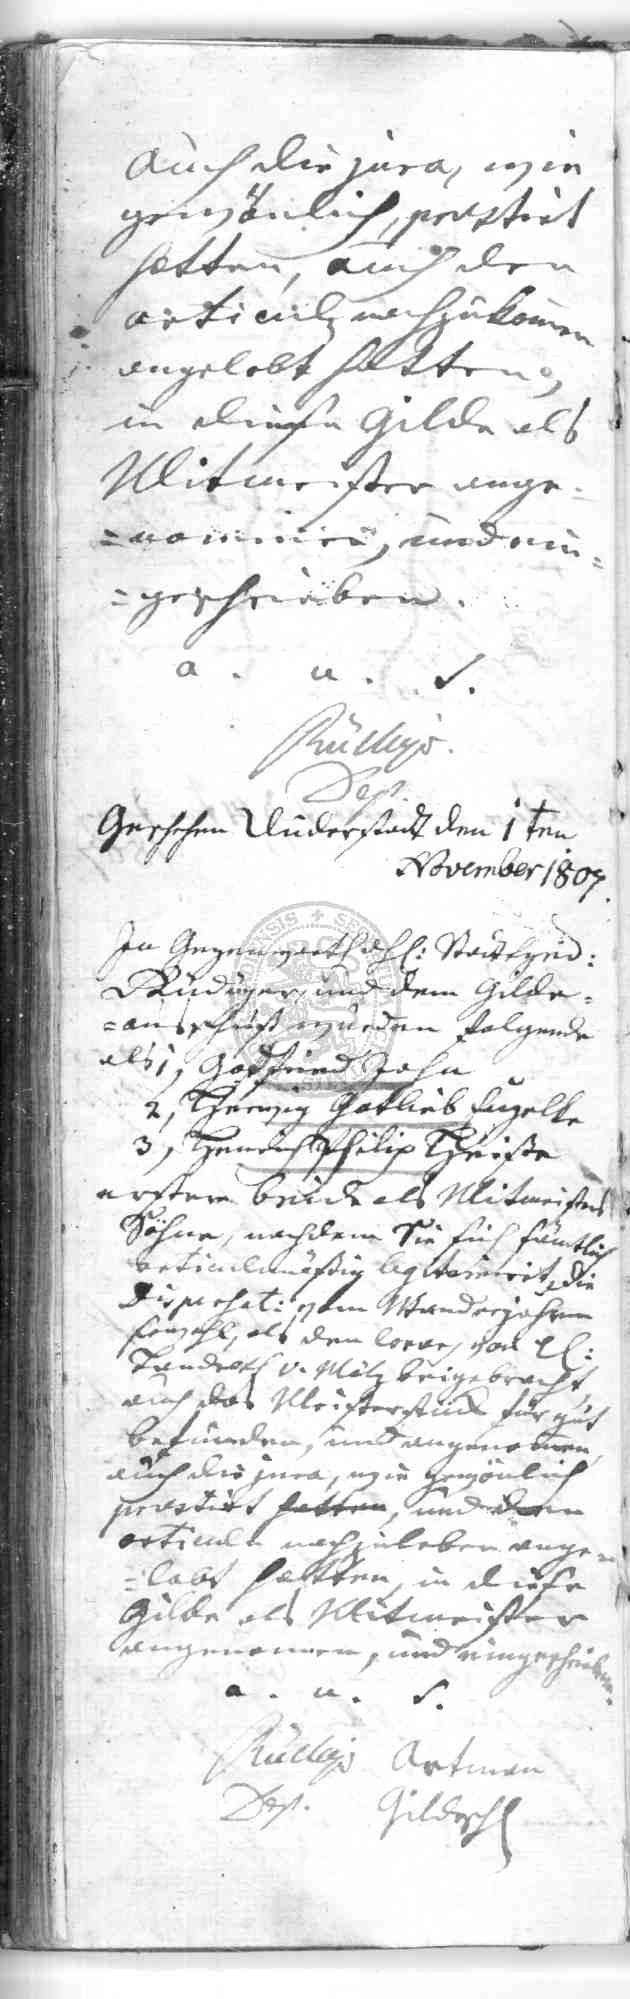 auch die jura, wie
gewönlich, prestirt
hatten, auch den
articuln nachzukomen
angelobt hatten,
in diese Gilde als
Mitmeister ange=
=nommen, und ein=
=geschrieben.
a. u. s.
Dep.
Geschehen Duderstadt den 1ten
November 1807.
In Gegenwarth des H: Stadtsynd:
und dem Gilde=
=ausschuß wurden folgende
als 1, Gottfried John
2, Herwig Gotlieb Engelke
3, Henrich Philip Theiste
erstere beide als Mitmeisters
Söhne, nachdem Sie sich sämtlich
articulmäßig legitimirt, die
Dispensat: vom Wanderjahren
sowohl, als den von H:
Landrath v. beigebracht,
auch das Meisterstück für gut
befunden, und angenomen,
auch die jura, wie gewönlich
prestirt hatten, und den
articuln nachzuleben ange=
=lobt hatten, in diese
Gilde als Mitmeister
angenomen, und eingeschrieben.
a. u. s.
Artman
Dep. Gildesch